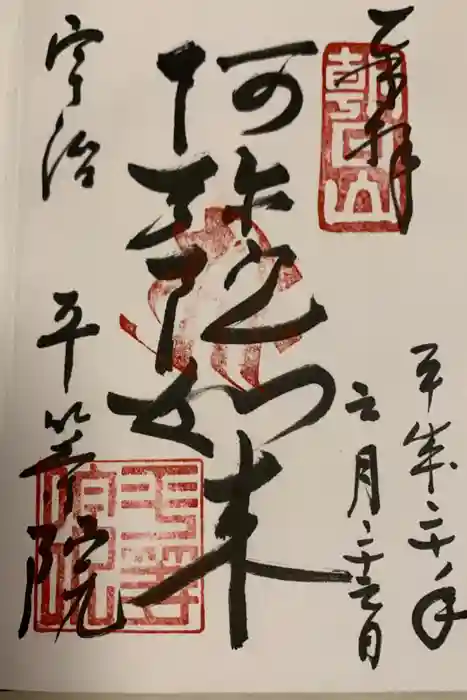 奉拝
朝日山
平成二十年
六月二十六日
阿弥陀如来
宇治
平等院